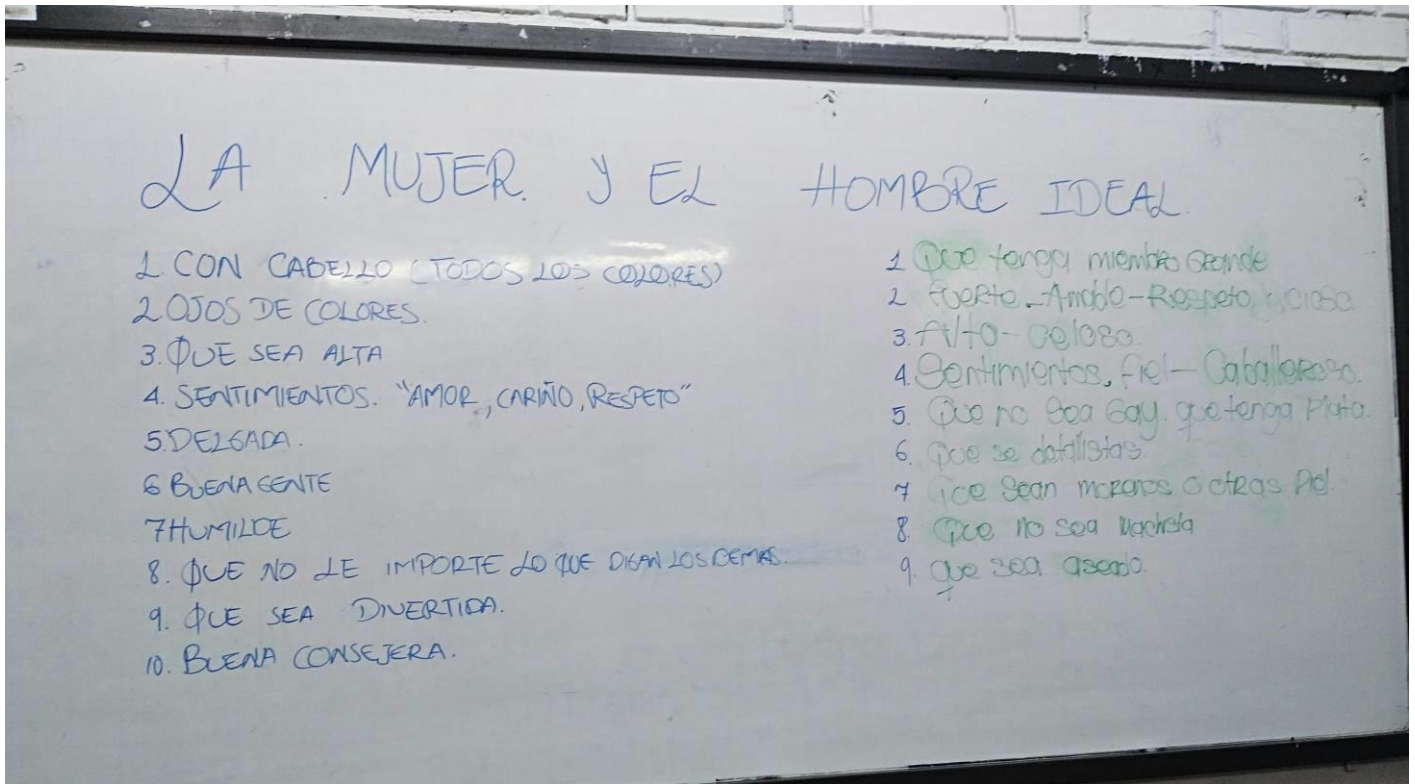 LA MUJER. Y EL HOMBRE IDEAL.
1. CON CABELLO (TODOS LOS COLORES)
2 OJOS DE COLORES.
3. QUE SEA ALTA
4. SENTIMIENTOS. "AMOR, CARIÑO, RESPETO"
5. DELGADA.
6 BUENA GENTE
7 HUMILDE
8. QUE NO LE IMPORTE LO QUE DIGAN LOS DEMAS.
9. QUE SEA DIVERTIDA.
10. BUENA CONSEJERA.
1 Que tenga miembro Grande
2 Fuerte - Amable - Respeto
3. Alto - Celoso.
4. Sentimientos, fiel - Caballeroso.
5. Que no Sea Gay. que tenga Plata.
6. Que se detallistas.
7 Que Sean morenos o otras Piel.
8. Que no sea Machista
9. que sea aseado.